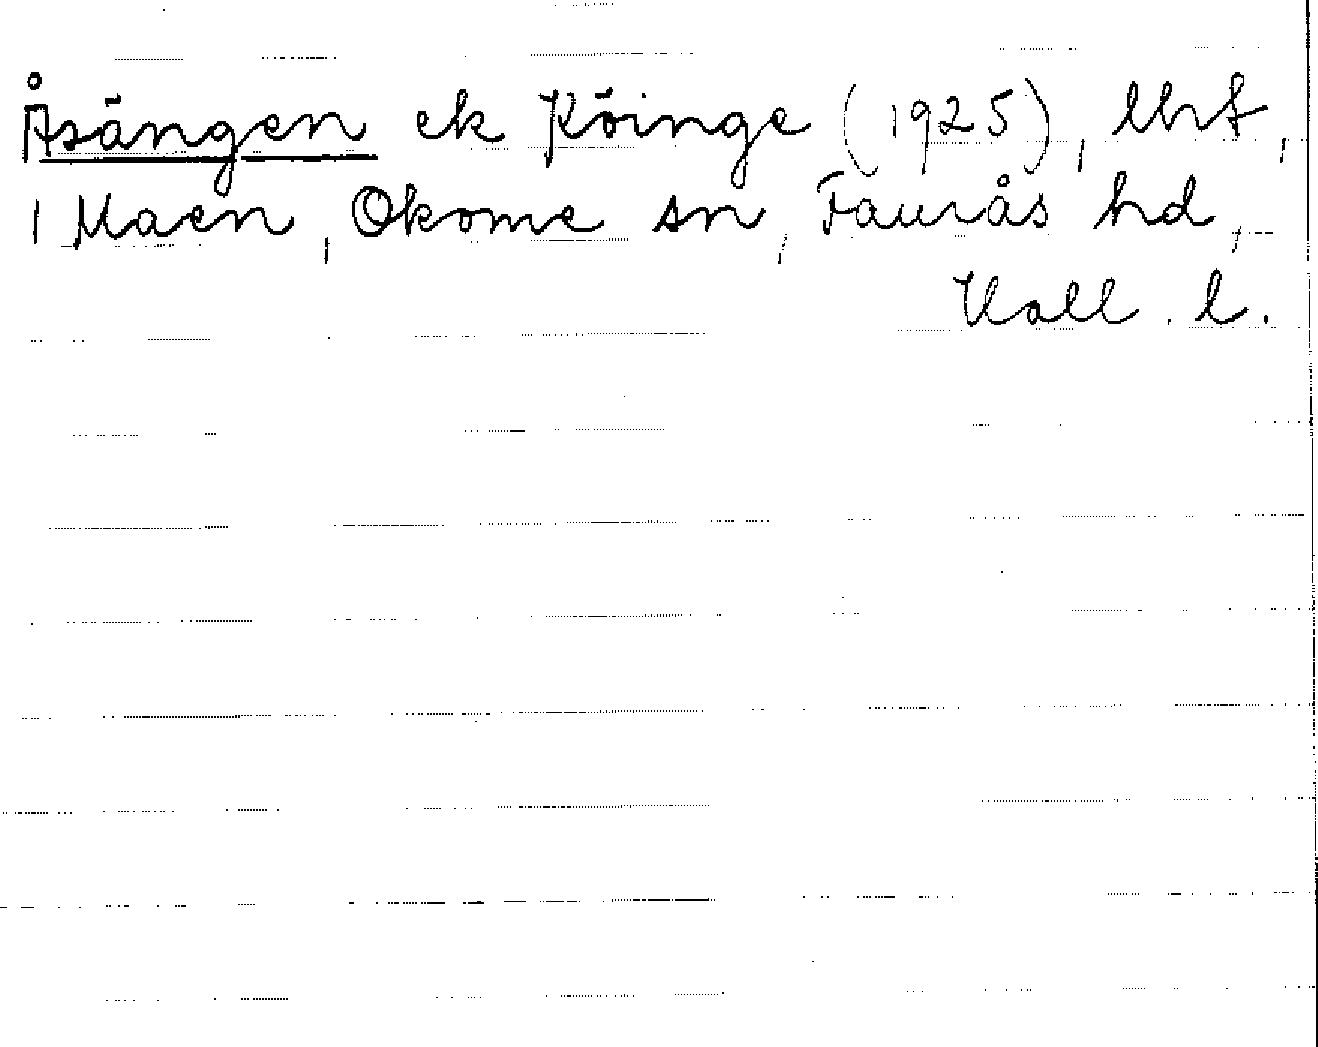 Åsängen ek Köinge (1925), lht,
1 Maen, Okome sn, Faurås hd,
Hall. l.